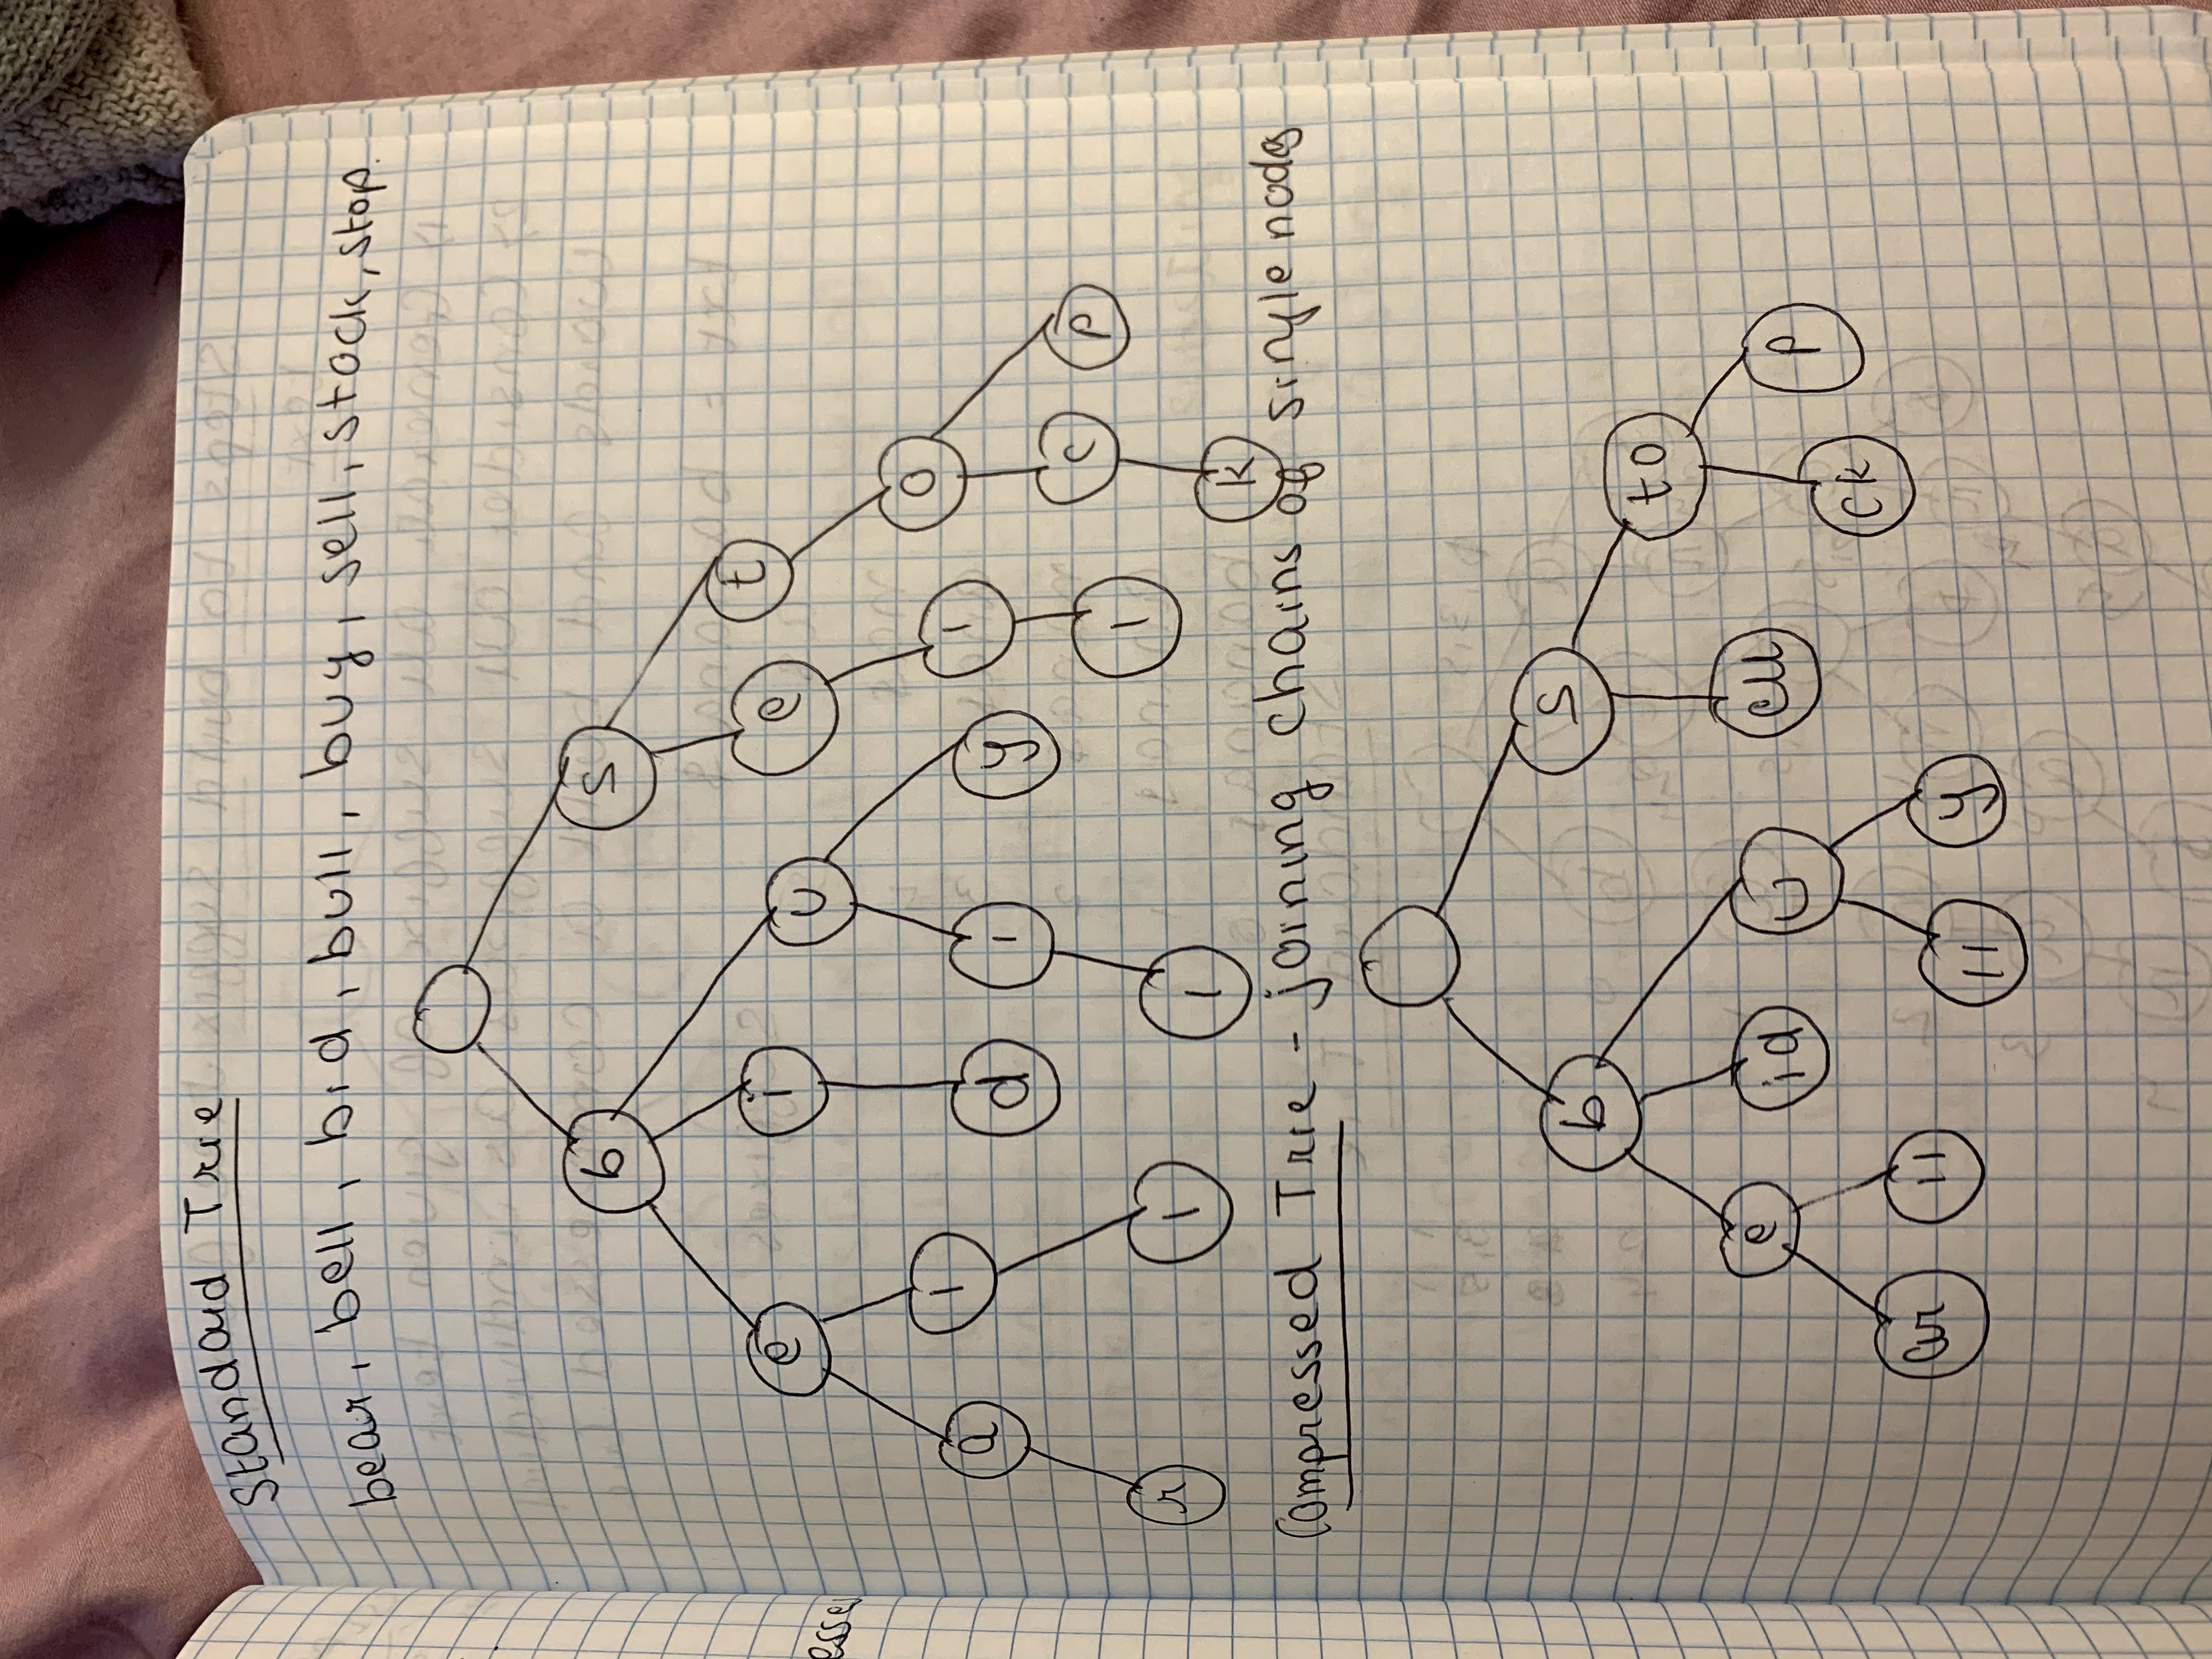 Standard Trie
bear, bell, bid, bull, buy, sell, stock, stop.
b s
e i u e t
a l d l y l o
r l l l c p
k
Compressed Trie - joining chains of single nodes
b s
e id u ell to
ar ll ll y ck p